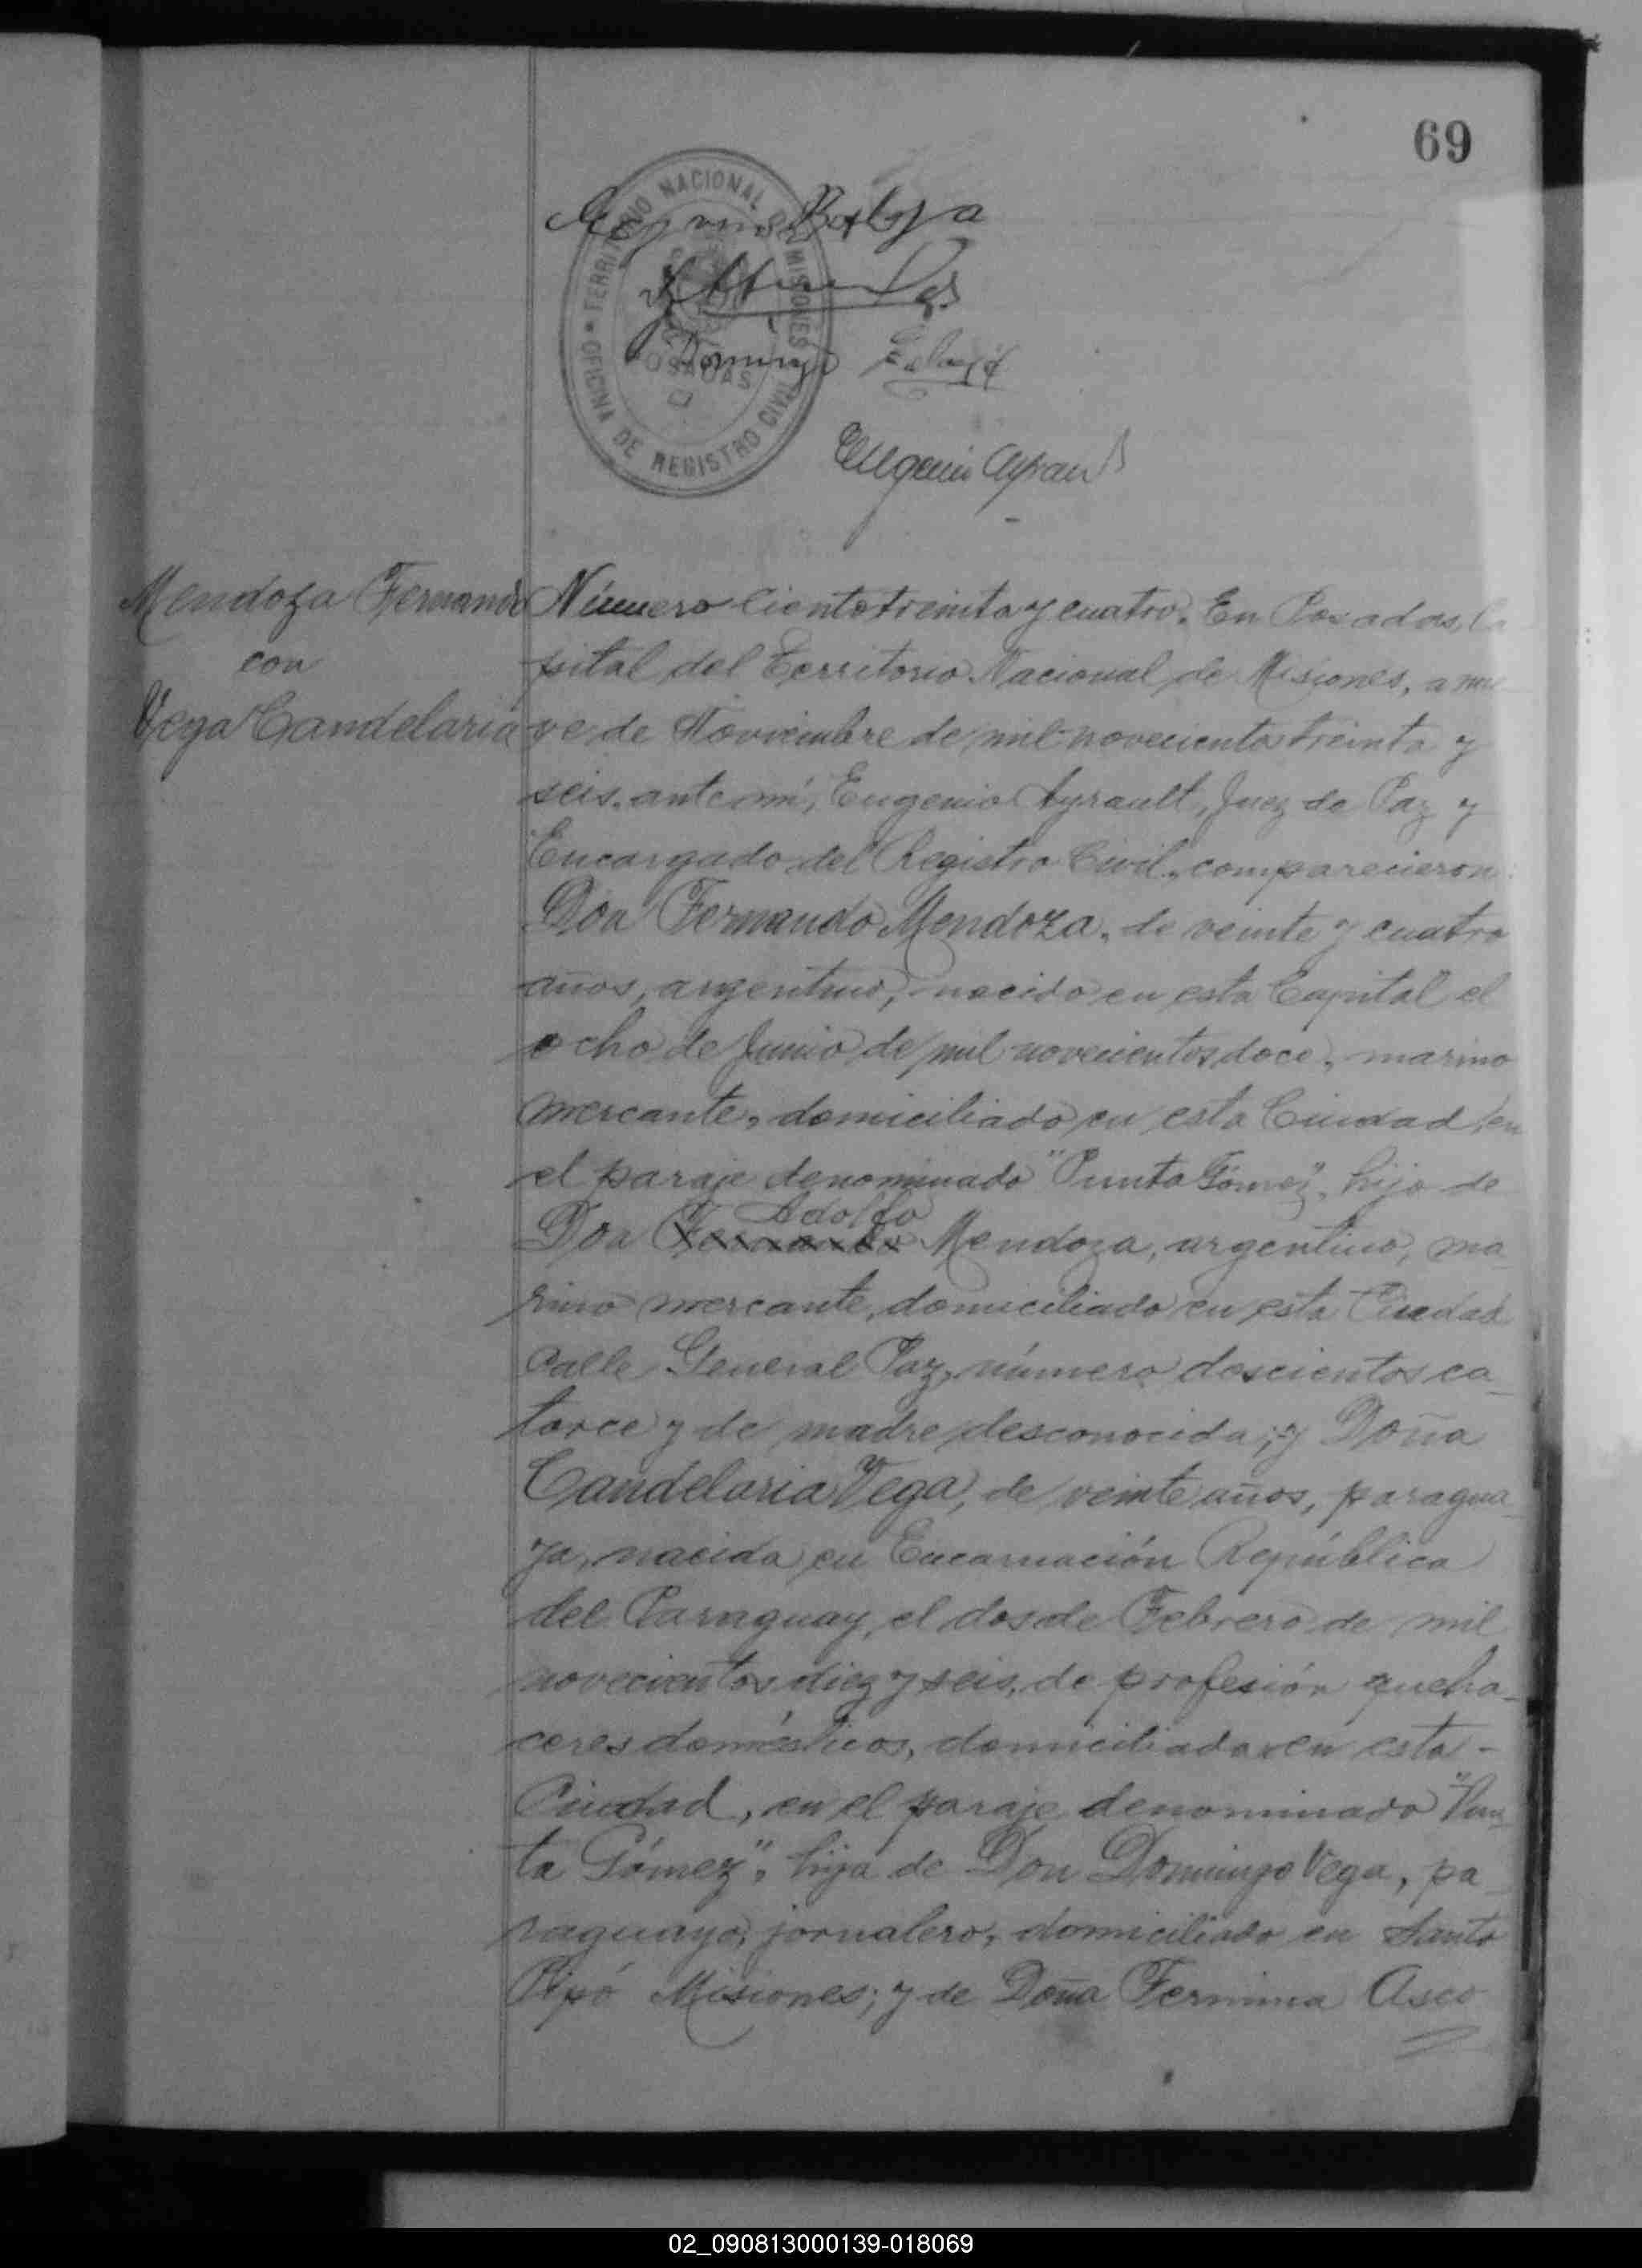 69
TERRITORIO NACIONAL DE MISIONES
OFICINA DE REGISTRO CIVIL
POSADAS
Domingo
Eugenio Ayrault
Mendoza Fernando
con
Vega Candelaria
Número ciento treinta y cuatro. En Posadas, Ca
pital del Territorio Nacional de Misiones, a nue
ve de Noviembre de mil novecientos treinta y
seis, ante mí, Eugenio Ayrault, Juez de Paz y
Encargado del Registro Civil, comparecieron:
Don Fernando Mendoza, de veinte y cuatro
años, argentino, nacido en esta Capital el
ocho de Junio de mil novecientos doce, marino
mercante, domiciliado en esta Ciudad, en
el paraje denominado "Punta Gómez", hijo de
Adolfo
Don Fernando Mendoza, argentino, ma_
rino mercante, domiciliado en esta Ciudad
calle General Paz, número doscientos ca_
torce y de madre desconocida; y Doña
Candelaria Vega, de veinte años, paragua_
ya, nacida en Encarnación República
del Paraguay, el dos de Febrero de mil
novecientos diez y seis, de profesión queha_
ceres domésticos, domiciliada en esta -
Ciudad, en el paraje denominado "Pun_
ta Gómez", hija de Don Domingo Vega, pa_
raguayo, jornalero, domiciliado en Santo
Pipó Misiones; y de Doña Fermina Asco
02_090813000139-018069